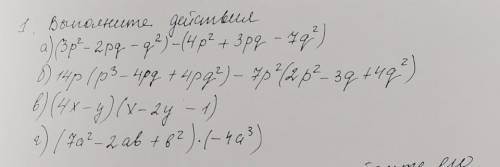 1. Выполните действия
а) (3p² - 2pq - q²) - (4p² + 3pq - 7q²)
б) 14p (p³ - 4pq + 4pq²) - 7p² (2p² - 3q + 4q²)
в) (4x - y) (x - 2y - 1)
г) (7a² - 2ab + b²) · (-4a³)